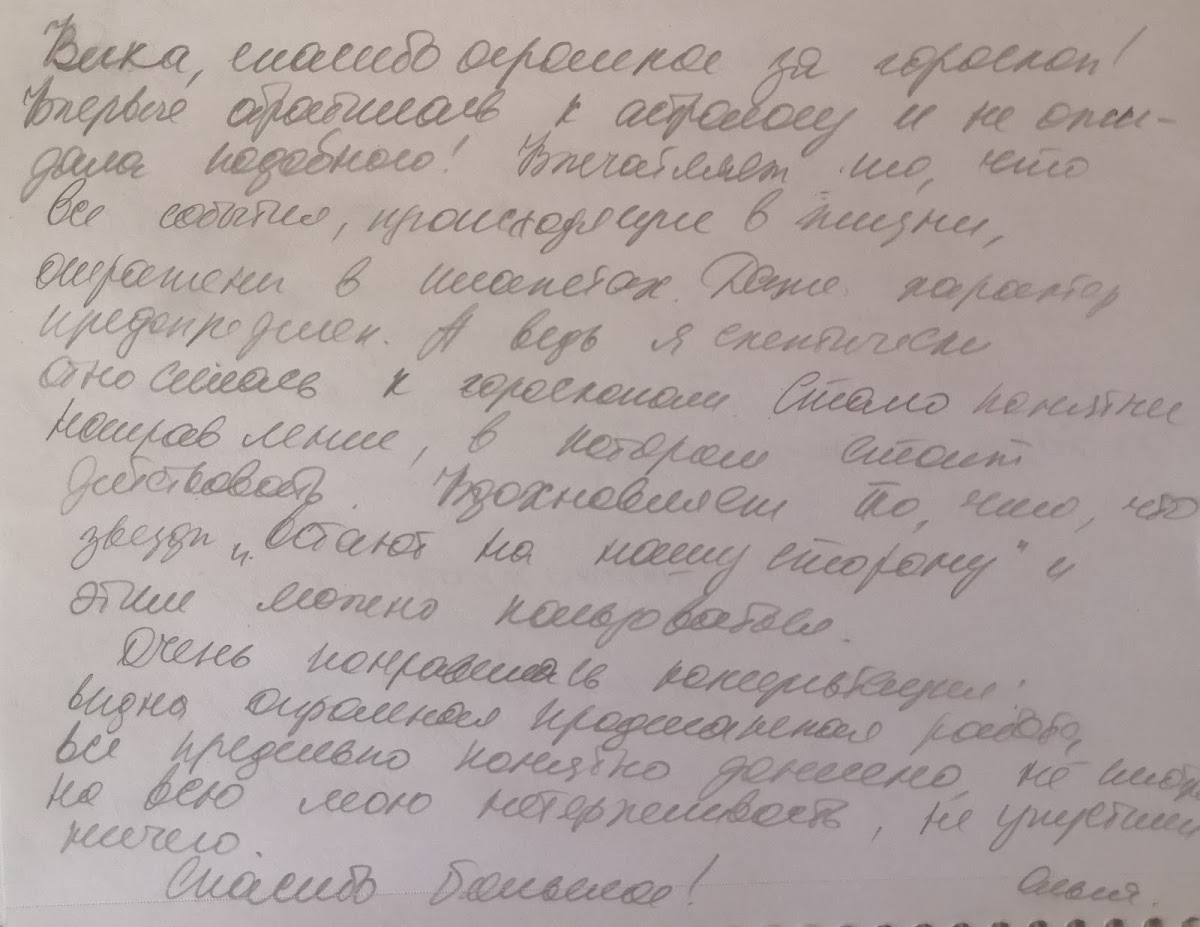 Вика, спасибо огромное за гороскоп!
Впервые обратилась к астрологу и не ожи-
дала подобного! Впечатляет то, что
все события, происходящие в жизни,
отражены в планетах. Даже характер
предопределен. А ведь я скептически
относилась к гороскопам. Стало понятнее
направление, в котором стоит
действовать. Вдохновляет то, что
звезды „встают на нашу сторону" и
этим можно пользоваться.
Очень понравилась консультация:
видна огромная проделанная работа,
все предельно понятно донесено, не смотря
на всю мою нетерпеливость, не упустили
ничего.
Спасибо большое!